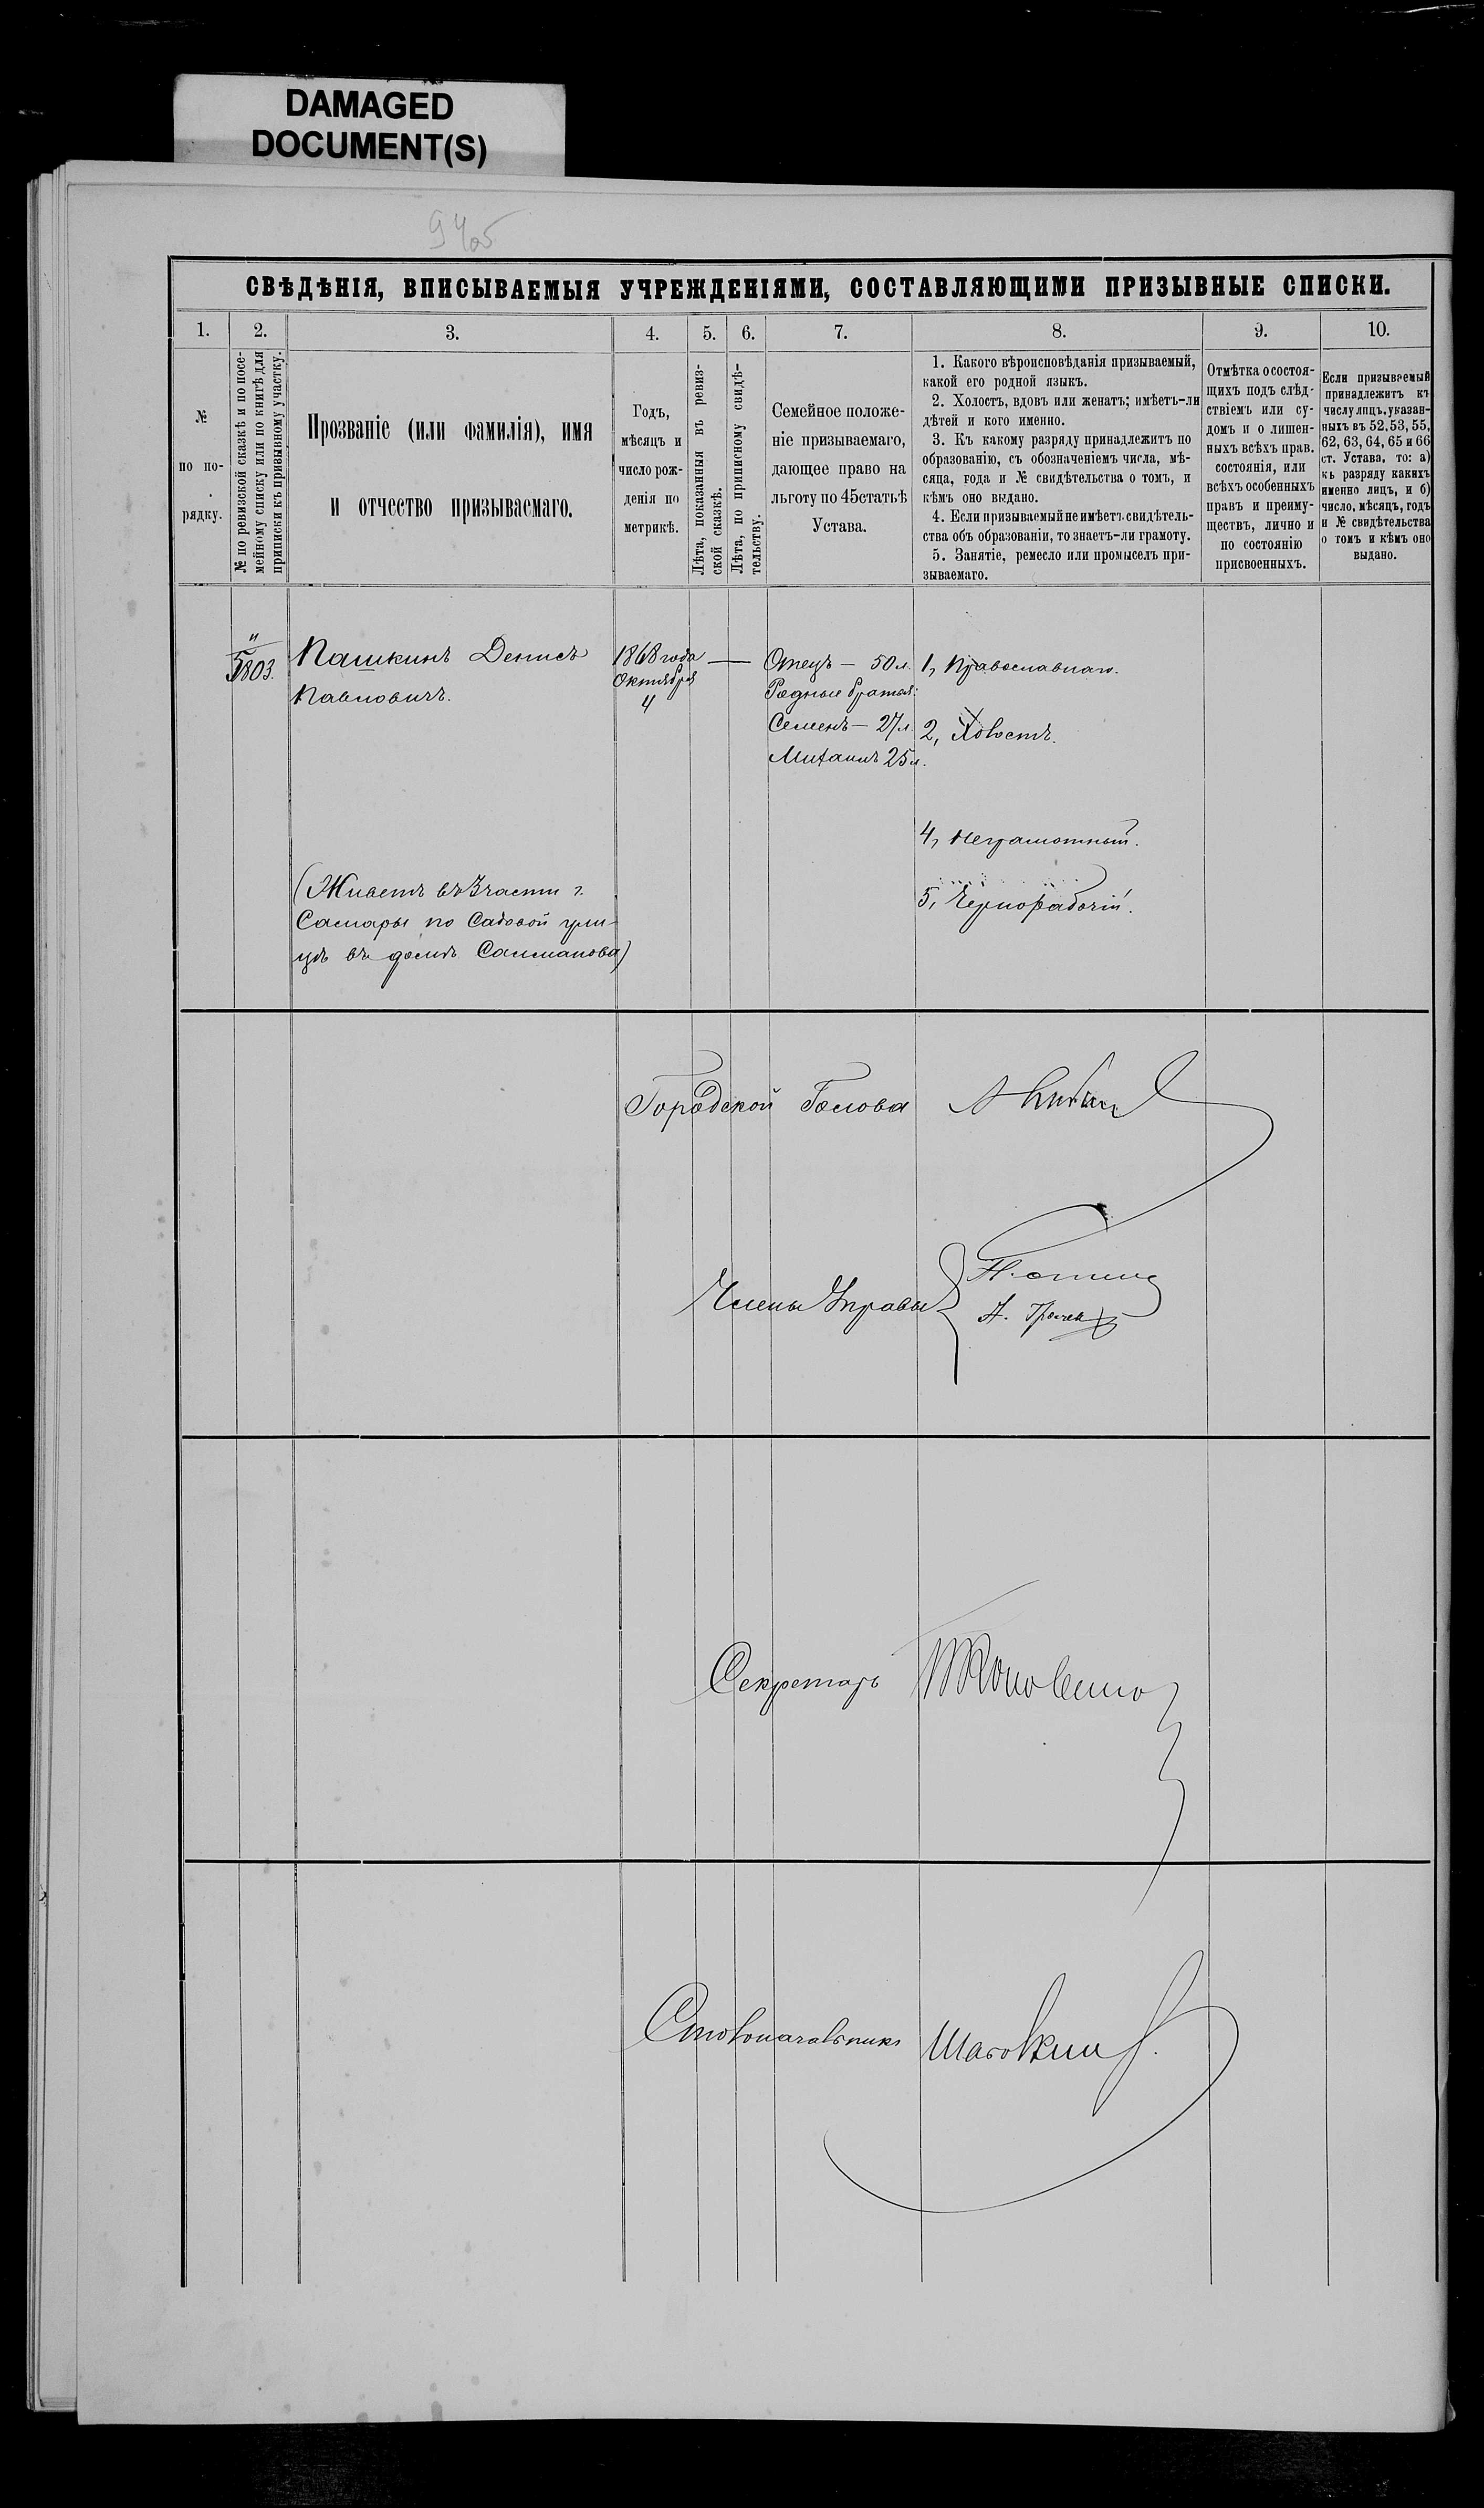 DAMAGED
DOCUMENT(S)
СВѢДѢНІЯ, ВПИСЫВАЕМЫЯ УЧРЕЖДЕНІЯМИ, СОСТАВЛЯЮЩИМИ ПРИЗЫВНЫЕ СПИСКИ.
1.
2.
3.
4.
5.
6.
7.
8.
9.
10.
№
по по-
рядку.
№ по ревизской сказкѣ и по посе-
мейному списку или по книгѣ для
приписки къ призывному участку.
Прозваніе (или фамилія), имя
и отчество призываемаго.
Годъ,
мѣсяцъ и
число рож-
денія по
метрикѣ.
Лѣта, показанныя въ ревиз-
ской сказкѣ.
Лѣта, по приписному свидѣ-
тельству.
Семейное положе-
ніе призываемаго,
дающее право на
льготу по 45статьѣ
Устава.
1. Какого вѣроисповѣданія призываемый,
какой его родной языкъ.
2. Холостъ, вдовъ или женатъ; имѣетъ-ли
дѣтей и кого именно.
3. Къ какому разряду принадлежитъ по
образованію, съ обозначеніемъ числа, мѣ-
сяца, года и № свидѣтельства о томъ, и
кѣмъ оно выдано.
4. Если призываемый не имѣетъ свидѣтель-
ства объ образованіи, то знаетъ-ли грамоту.
5. Занятіе, ремесло или промыселъ при-
зываемаго.
Отмѣтка о состоя-
щихъ подъ слѣд-
ствіемъ или су-
домъ и о лишен-
ныхъ всѣхъ прав.
состоянія, или
всѣхъ особенныхъ
правъ и преиму-
ществъ, лично и
по состоянію
присвоенныхъ.
Если призываемый
принадлежитъ къ
числу лицъ, указан-
ныхъ въ 52, 53, 55,
62, 63, 64, 65 и 66
ст. Устава, то: а)
къ разряду какихъ
именно лицъ, и б)
число, мѣсяцъ, годъ
и № свидѣтельства
о томъ и кѣмъ оно
выдано.
5803.
Пашкинъ Денисъ
Павловичъ.
(Живетъ въ 3 части г.
Самары по Садовой ули-
цѣ въ домѣ Салманова)
1868 года
Октября
4
Отецъ — 50 л.
Родные братья:
Семенъ — 27 л.
Михаилъ 25 л.
1, Православнаго.
2, Холостъ.
4, Неграмотный.
5, Чернорабочій.
Городской Голова
Члены Управы
Секретарь
Столоначальникъ